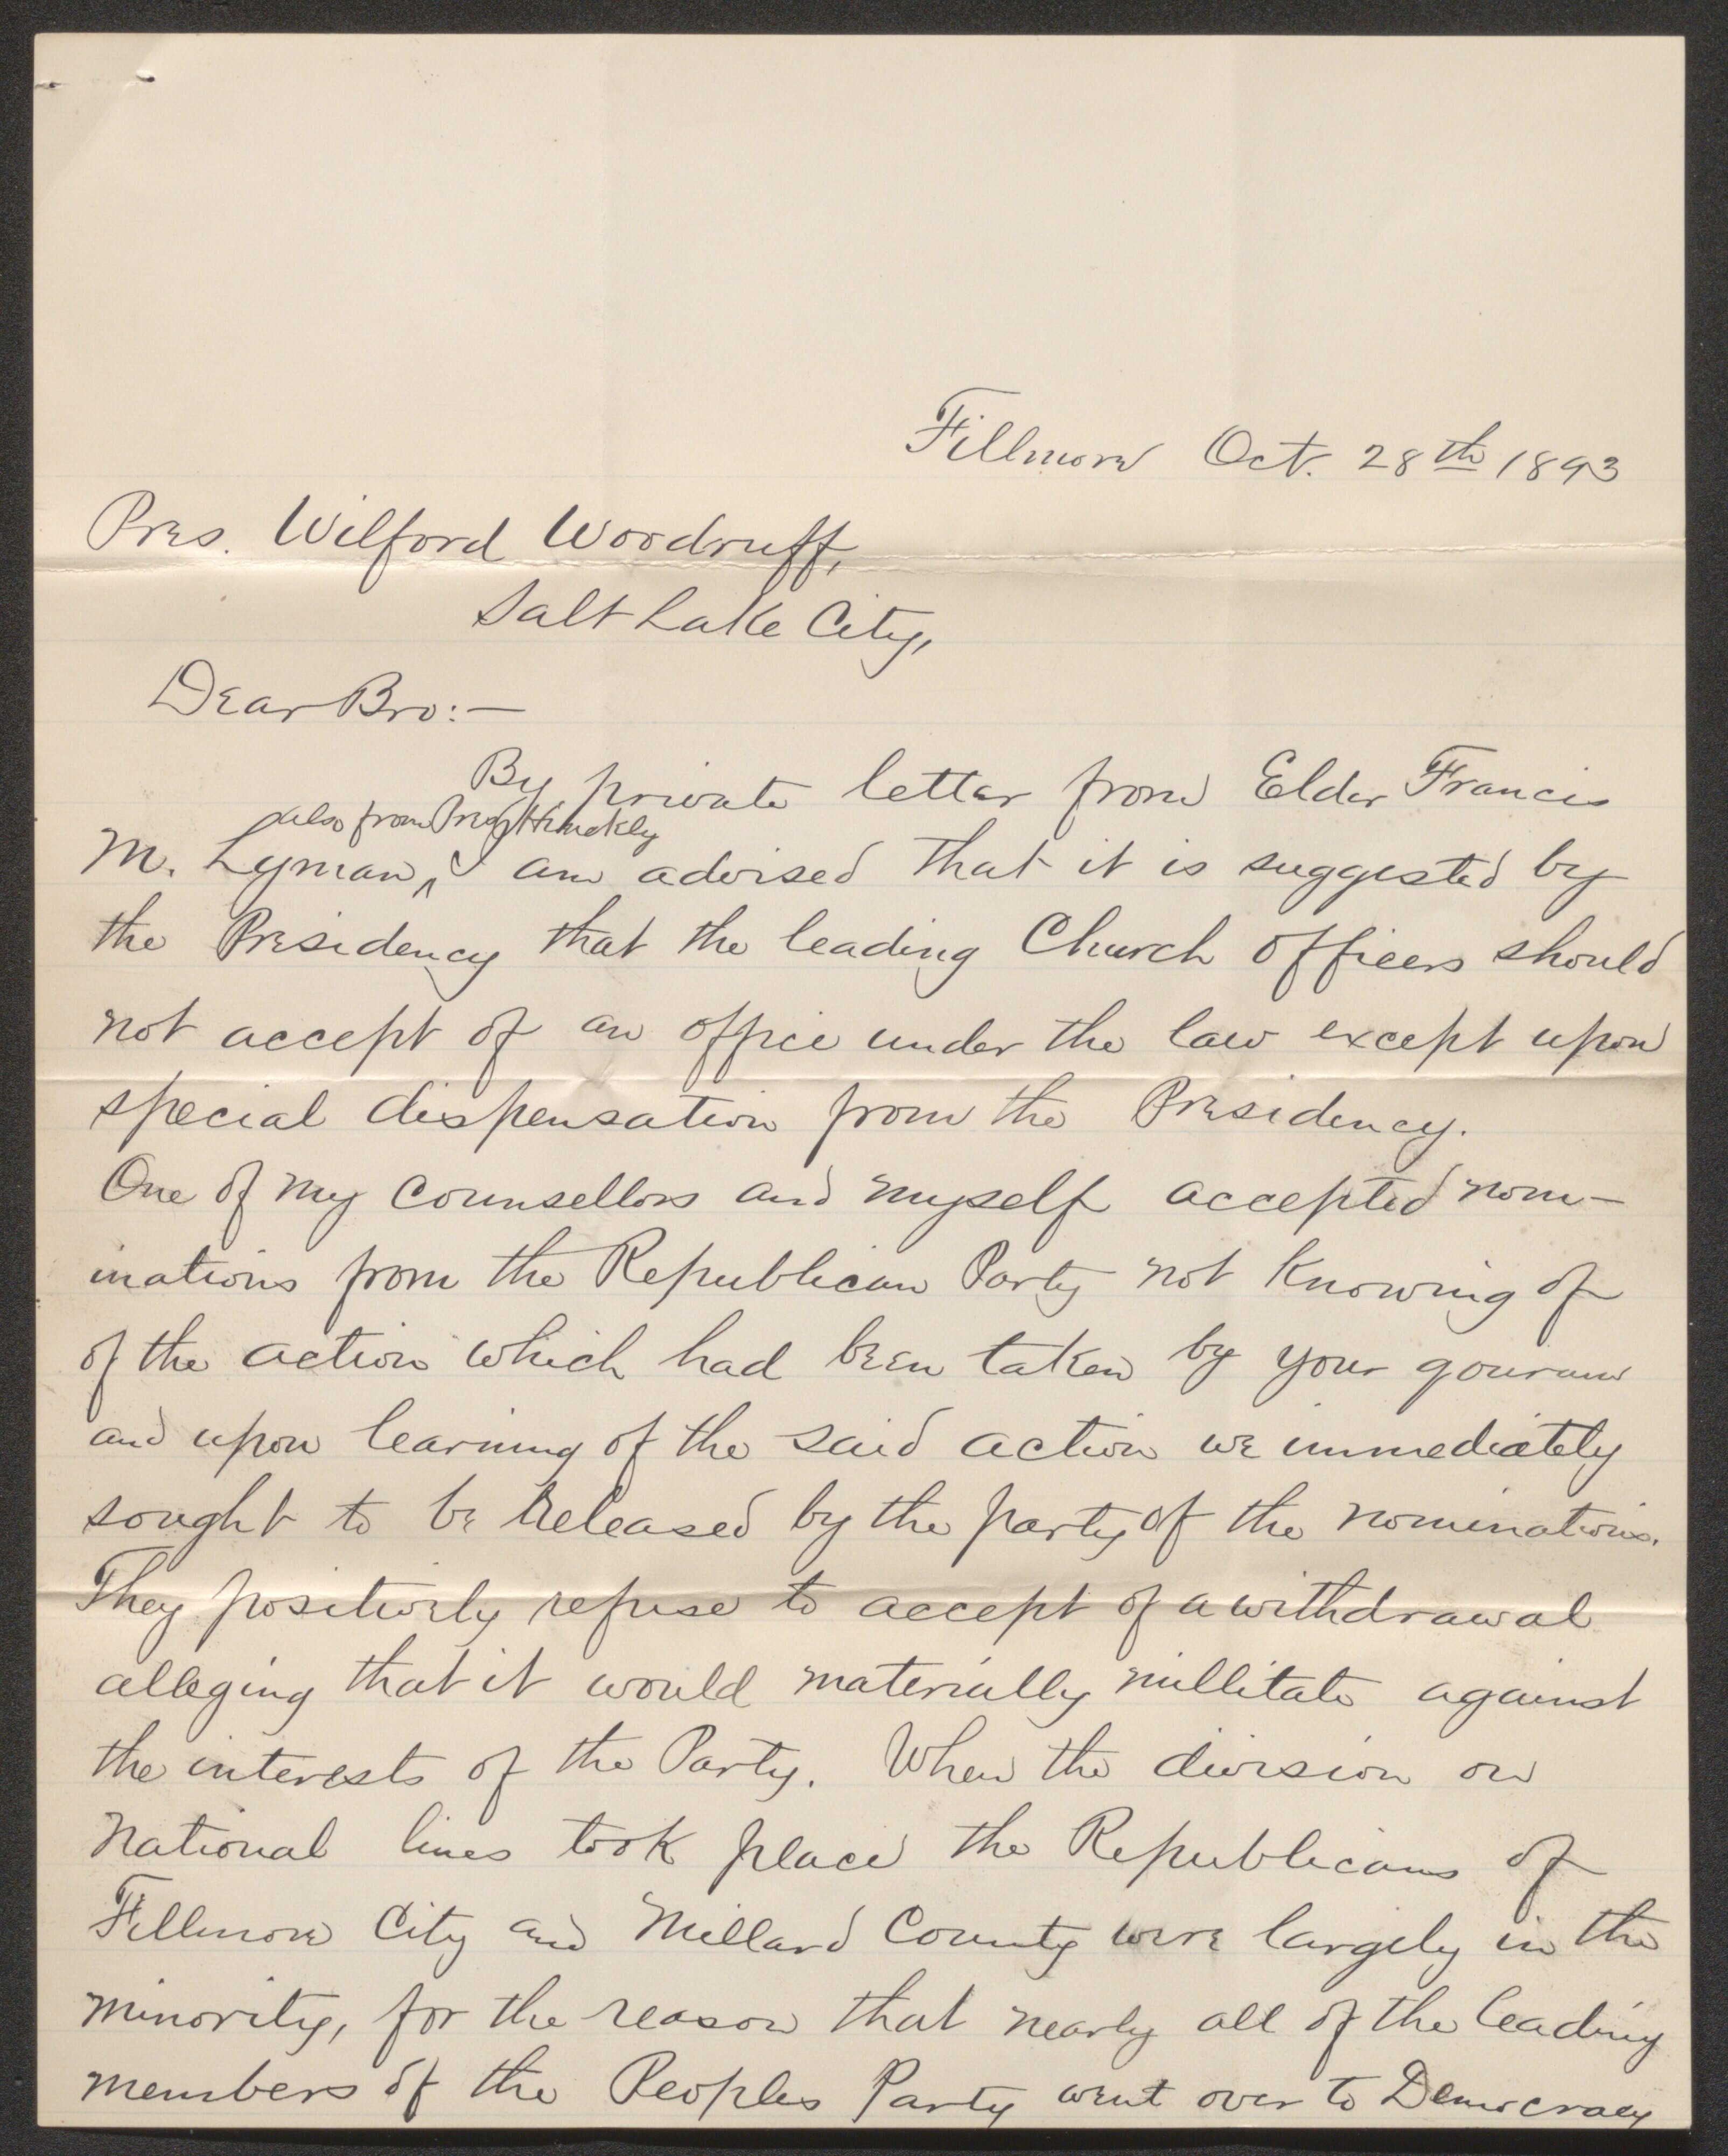 Fillmore Oct. 28th 1893
Pres. Wilford Woodruff,
Salt Lake City,
Dear Bro:—
By private letter from Elder Francis
also from Pres Hinckly
M. Lyman, I am advised that it is suggested by
the Presidency that the leading Church officers should
not accept of an office under the law except upon
special dispensation from the Presidency.
One of my counsellors and myself accepted nom-
inations from the Republican Party not knowing of
of the action which had been taken by your
and upon learning of the said action we immediately
sought to be released by the party of the nominations.
They positively refuse to accept of a withdrawal
alleging that it would materially millitate against
the interests of the Party. When the division on
National lines took place the Republicans of
Fillmore City and Millard County were largely in the
minority, for the reason that nearly all of the leading
members of the Peoples Party went over to Democracy